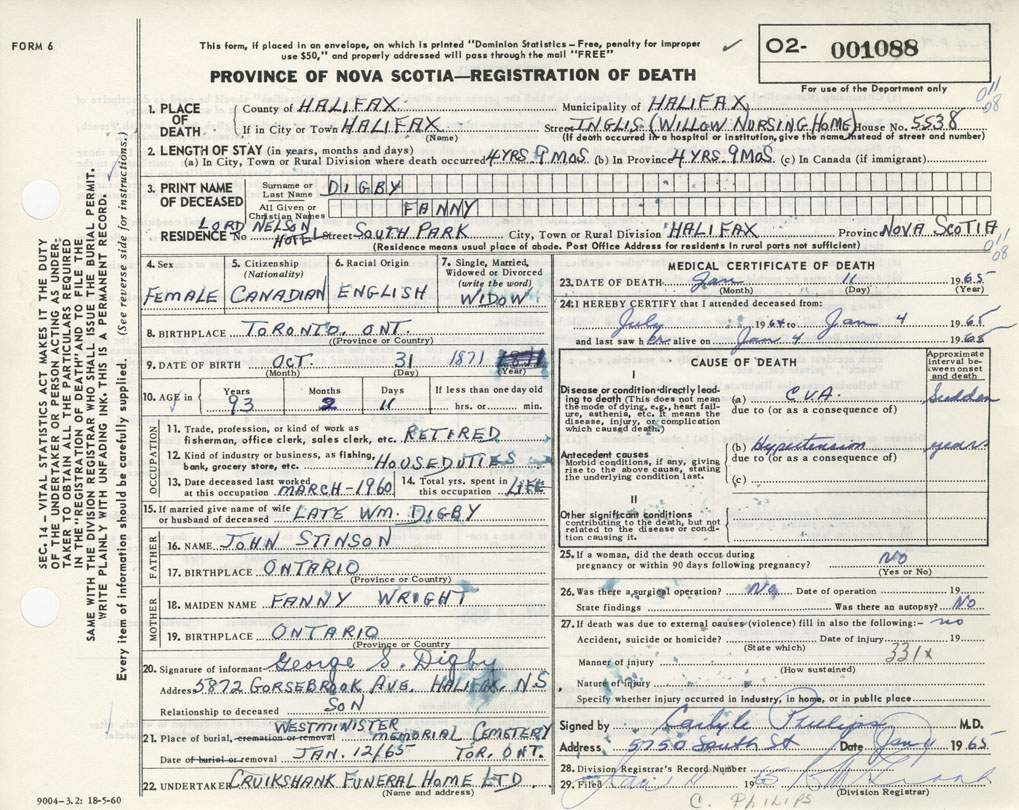 FORM 6
This form, if placed in an envelope, on which is printed "Dominion Statistics – Free, penalty for improper
use $50," and properly addressed will pass through the mail "FREE"
✓
O2- 001088
For use of the Department only
PROVINCE OF NOVA SCOTIA—REGISTRATION OF DEATH
011
08
SEC. 14 – VITAL STATISTICS ACT MAKES IT THE DUTY
OF THE UNDERTAKER OR PERSON ACTING AS UNDER-
TAKER TO OBTAIN ALL THE PARTICULARS REQUIRED
IN THE "REGISTRATION OF DEATH" AND TO FILE THE
SAME WITH THE DIVISION REGISTRAR WHO SHALL ISSUE THE BURIAL PERMIT.
WRITE PLAINLY WITH UNFADING INK. THIS IS A PERMANENT RECORD.
Every item of information should be carefully supplied. (See reverse side for instructions.)
1. PLACE OF DEATH
County of HALIFAX Municipality of HALIFAX
If in City or Town HALIFAX Street INGLIS (WILLOW NURSING HOME) House No. 5538
(Name) (If death occurred in a hospital or institution, give the name instead of street and number)
2. LENGTH OF STAY (in years, months and days)
(a) In City, Town or Rural Division where death occurred 4 YRS. 9 MOS. (b) In Province 4 YRS. 9 MOS. (c) In Canada (if immigrant)
3. PRINT NAME OF DECEASED
Surname or Last Name DIGBY
All Given or Christian Names FANNY
RESIDENCE No LORD NELSON HOTEL Street SOUTH PARK City, Town or Rural Division HALIFAX Province NOVA SCOTIA
(Residence means usual place of abode. Post Office Address for residents in rural parts not sufficient)
011
08
4. Sex FEMALE
5. Citizenship (Nationality) CANADIAN
6. Racial Origin ENGLISH
7. Single, Married, Widowed or Divorced (write the word) WIDOW
8. BIRTHPLACE TORONTO, ONT.
(Province or Country)
9. DATE OF BIRTH OCT. 31 1871
(Month) (Day) (Year)
10. AGE in Years 93 Months 2 Days 11 If less than one day old hrs. or min.
OCCUPATION
11. Trade, profession, or kind of work as
fisherman, office clerk, sales clerk, etc. RETIRED
12. Kind of industry or business, as fishing,
bank, grocery store, etc. HOUSEDUTIES
13. Date deceased last worked
at this occupation MARCH-1960
14. Total yrs. spent in
this occupation LIFE
15. If married give name of wife
or husband of deceased LATE WM. DIGBY
FATHER
16. NAME JOHN STINSON
17. BIRTHPLACE ONTARIO
(Province or Country)
MOTHER
18. MAIDEN NAME FANNY WRIGHT
19. BIRTHPLACE ONTARIO
(Province or Country)
20. Signature of informant George S. Digby
Address 5872 GORSEBROOK AVE. HALIFAX, NS
Relationship to deceased SON
21. Place of burial, cremation or removal WESTMINISTER MEMORIAL CEMETERY
Date of burial or removal JAN. 12/65 TOR, ONT.
22. UNDERTAKER CRUIKSHANK FUNERAL HOME LTD.
(Name and address)
9004–3.2: 18-5-60
MEDICAL CERTIFICATE OF DEATH
23. DATE OF DEATH Jan 11 1965
(Month) (Day) (Year)
24. I HEREBY CERTIFY that I attended deceased from:
July 1964 to Jan 4 1965
and last saw her alive on Jan 4 1965
CAUSE OF DEATH
Approximate interval between onset and death
I
Disease or condition directly lead-
ing to death (This does not mean
the mode of dying, e.g., heart failure,
asthenia, etc. It means the
disease, injury, or complication
which caused death.)
(a) C.V.A. Sudden
due to (or as a consequence of)
Antecedent causes
Morbid conditions, if any, giving
rise to the above cause, stating
the underlying condition last.
(b) Hypertension years.
due to (or as a consequence of)
(c)
II
Other significant conditions
contributing to the death, but not
related to the disease or condi-
tion causing it.
25. If a woman, did the death occur during
pregnancy or within 90 days following pregnancy? NO
(Yes or No)
26. Was there a surgical operation? No Date of operation 19
State findings Was there an autopsy? NO
27. If death was due to external causes (violence) fill in also the following:- no
Accident, suicide or homicide? Date of injury 19
(State which)
331x
Manner of injury
(How sustained)
Nature of injury
Specify whether injury occurred in industry, in home, or in public place
Signed by Carlyle Phillips M.D.
Address 5750 South St Date 1965
28. Division Registrar's Record Number
29. Filed
(Division Registrar)
C. PHILIPS